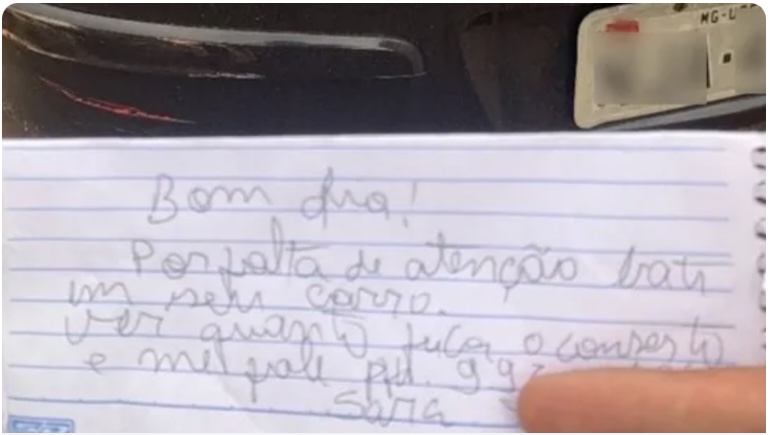 MG-U
Bom dia!
Por falta de atenção bati
em seu carro.
ver quanto ficar o conserto
e me fale pfv. 99
Sara